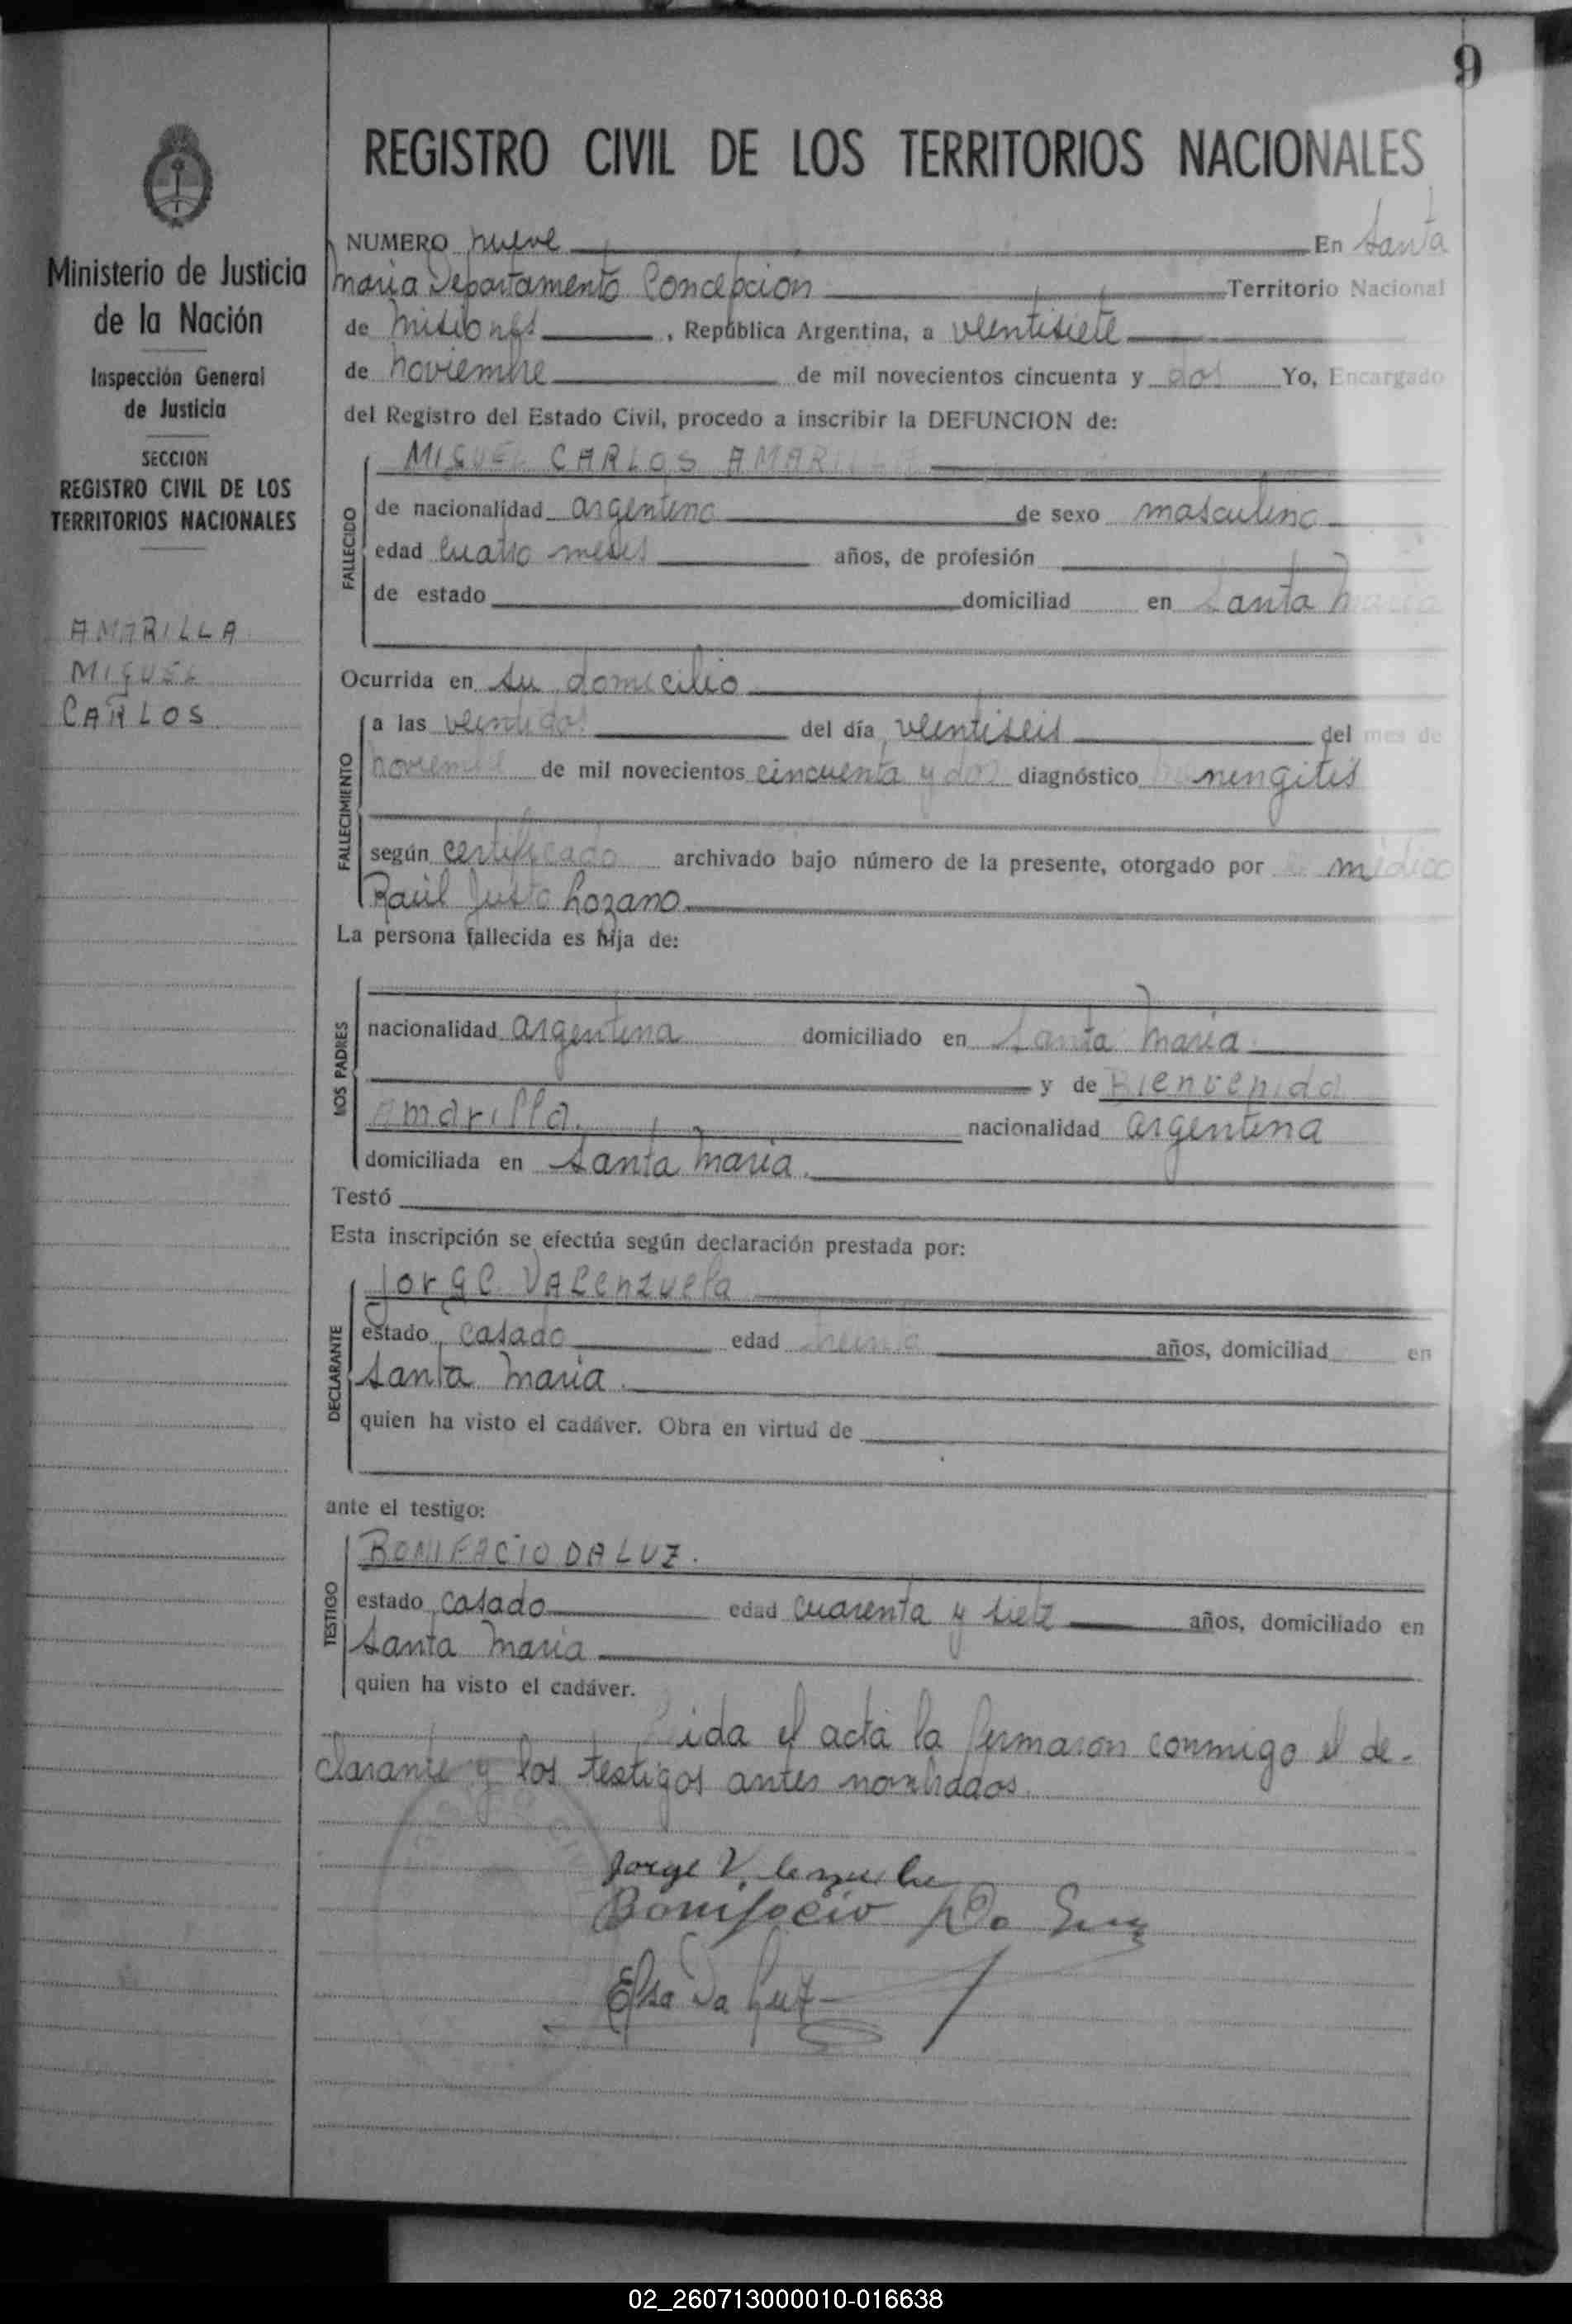 9
REGISTRO CIVIL DE LOS TERRITORIOS NACIONALES
Ministerio de Justicia
de la Nación
Inspección General
de Justicia
SECCION
REGISTRO CIVIL DE LOS
TERRITORIOS NACIONALES
AMARILLA
MIGUEL
CARLOS
NUMERO nueve En Santa
Maria Departamento Concepcion Territorio Nacional
de Misiones, República Argentina, a veentisiete
de noviembre de mil novecientos cincuenta y dos Yo, Encargado
del Registro del Estado Civil, procedo a inscribir la DEFUNCION de:
FALLECIDO
MIGUEL CARLOS AMARILLA
de nacionalidad argentino de sexo masculino
edad cuatro meses años, de profesión
de estado domiciliad en Santa Maria
Ocurrida en su domicilio
FALLECIMIENTO
a las veintidos del día veentiseis del mes de
noviembre de mil novecientos cincuenta y dos diagnóstico meningitis
según certificado archivado bajo número de la presente, otorgado por el médico
Raúl Justo Lozano
La persona fallecida es hija de:
LOS PADRES
nacionalidad argentina domiciliado en Santa Maria
y de Bienvenida
Amarilla. nacionalidad argentina
domiciliada en Santa Maria.
Testó
Esta inscripción se efectúa según declaración prestada por:
DECLARANTE
Jorge Valenzuela
estado casado edad treinta años, domiciliad en
Santa Maria.
quien ha visto el cadáver. Obra en virtud de
ante el testigo:
TESTIGO
BONIFACIO DA LUZ.
estado casado edad cuarenta y siete años, domiciliado en
Santa Maria
quien ha visto el cadáver.
Leida el acta la firmaron conmigo el de-
clarante y los testigos antes nombrados.
Jorge Valenzuela
Bonifacio Da Luz
Elsa Da Luz
02_260713000010-016638